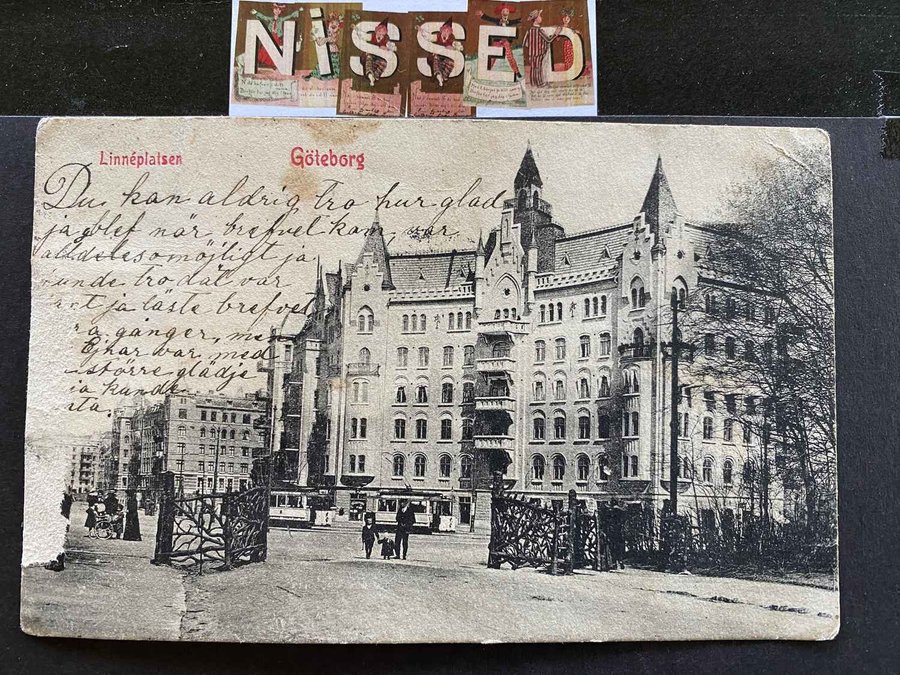 NiSSED
Linnéplatsen
Göteborg
Du kan aldrig tro hur glad
ja blef när brefvet kom, var
alldeles omöjligt ja
kunde tro dät var
ja läste brefvet
gånger, me
Ej har var med
större glädje
ja kunde